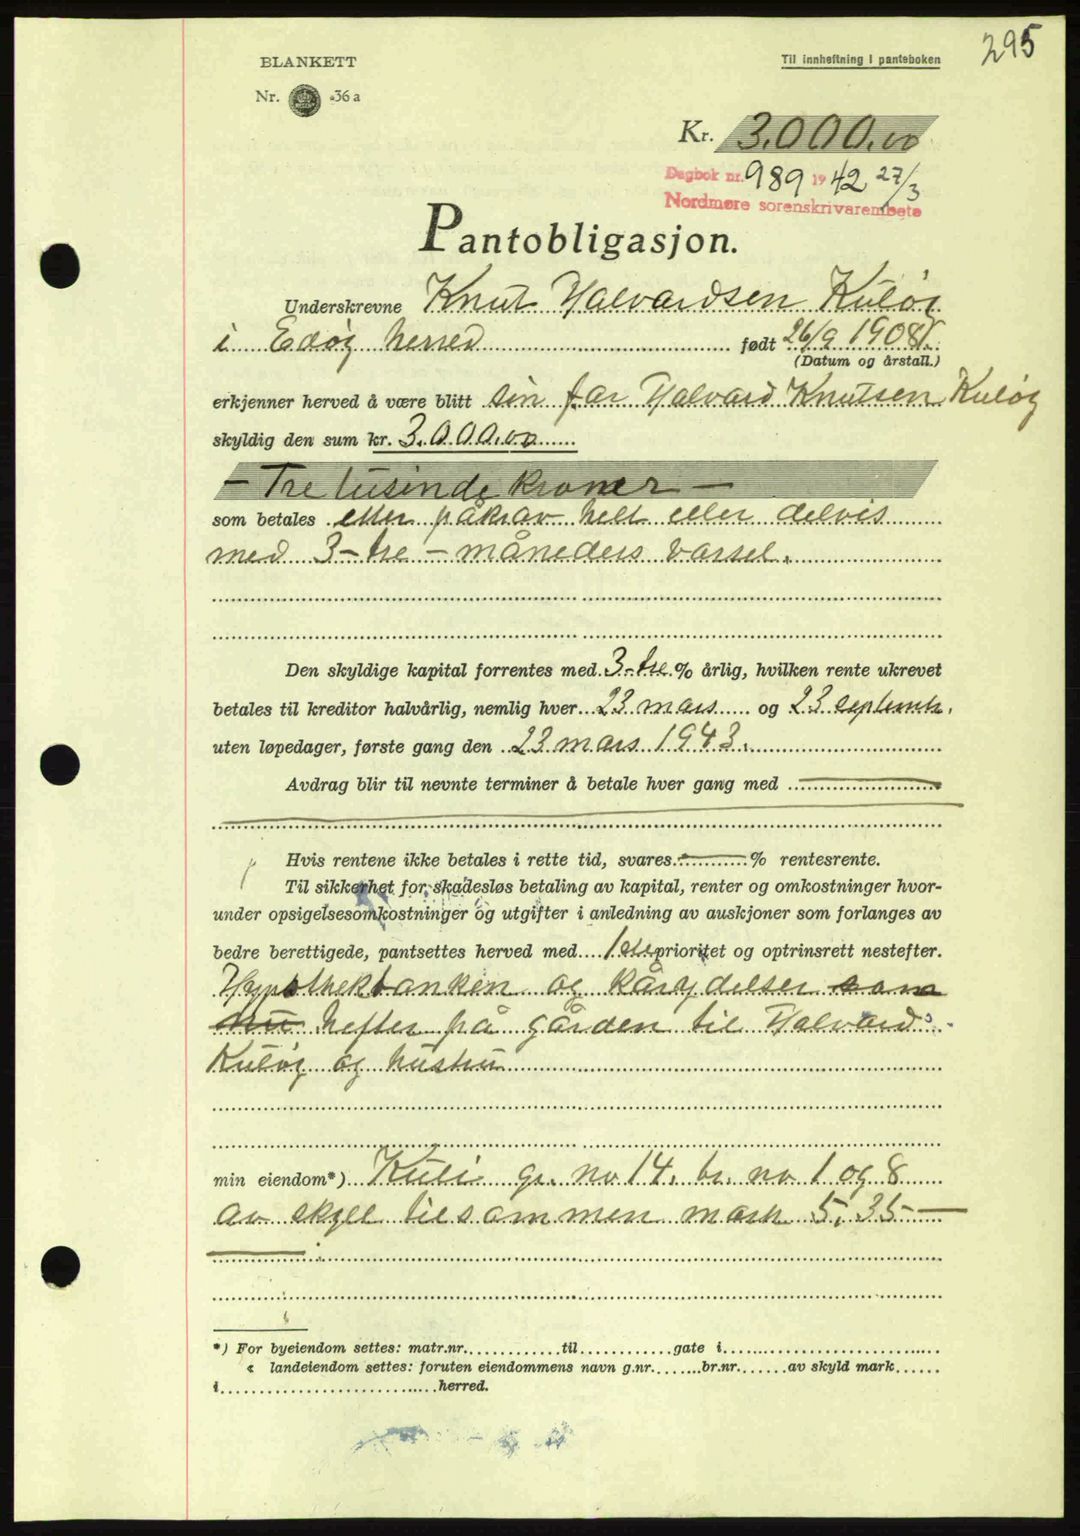 295
BLANKETT
Til innheftning i panteboken
Nr. 36 a
Kr. 3.000.00
Dagbok nr. 989 1942 27/3
Nordmøre sorenskrivarembete
Pantobligasjon.
Underskrevne Knut Halvardsen Kuløy
i Edøy herred født 26/9 1908
(Datum og årstall.)
erkjenner herved å være blitt sin far Halvard Knutsen Kuløy
skyldig den sum kr. 3.000.00
– Tre tusinde kroner –
som betales etter påkrav helt eller delvis
med 3 – tre – måneders varsel.
Den skyldige kapital forrentes med 3 - tre % årlig, hvilken rente ukrevet
betales til kreditor halvårlig, nemlig hver 23 mars og 23 septembr.
uten løpedager, første gang den 23 mars 1943.
Avdrag blir til nevnte terminer å betale hver gang med
Hvis rentene ikke betales i rette tid, svares % rentesrente.
Til sikkerhet for skadesløs betaling av kapital, renter og omkostninger hvor-
under opsigelsesomkostninger og utgifter i anledning av auskjoner som forlanges av
bedre berettigede, pantsettes herved med 1ste prioritet og optrinsrett nestefter.
Hypothekbanken og kårydelser som
nu hefter på gården til Halvard
Kuløy og hustru
min eiendom*) Kuli gr. no 14. br. no 1 og 8
av skyll tilsammen mark 5,35 –
*) For byeiendom settes: matr.nr. til gate i
« landeiendom settes: foruten eiendommens navn g.nr. br.nr. av skyld mark
i herred.